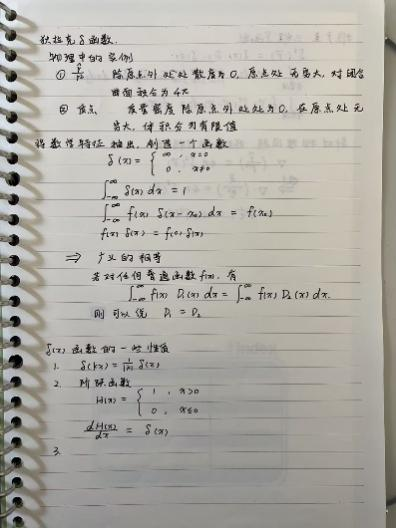 狄拉克 δ 函数.
物理中的实例
① r̂/r² 除原点外处处散度为0, 原点处无穷大, 对闭合
曲面积分为4π
② 质点 质量密度除原点外处处为0, 在原点处无
穷大, 体积分为有限值
将数学特征抽出, 创造一个函数
δ(x) = { ∞, x=0
0, x≠0
∫_{-∞}^{∞} δ(x) dx = 1
∫_{-∞}^{∞} f(x) δ(x-x₀) dx = f(x₀)
f(x) δ(x) = f(0) δ(x)
⇒ 广义的相等
若对任何普通函数f(x), 有
∫_{-∞}^{∞} f(x) D₁(x) dx = ∫_{-∞}^{∞} f(x) D₂(x) dx.
则可以说 D₁ = D₂
δ(x) 函数的一些性质
1. δ(kx) = 1/|k| δ(x)
2. 阶跃函数
H(x) = { 1, x>0
0, x≤0
dH(x)/dx = δ(x)
3.